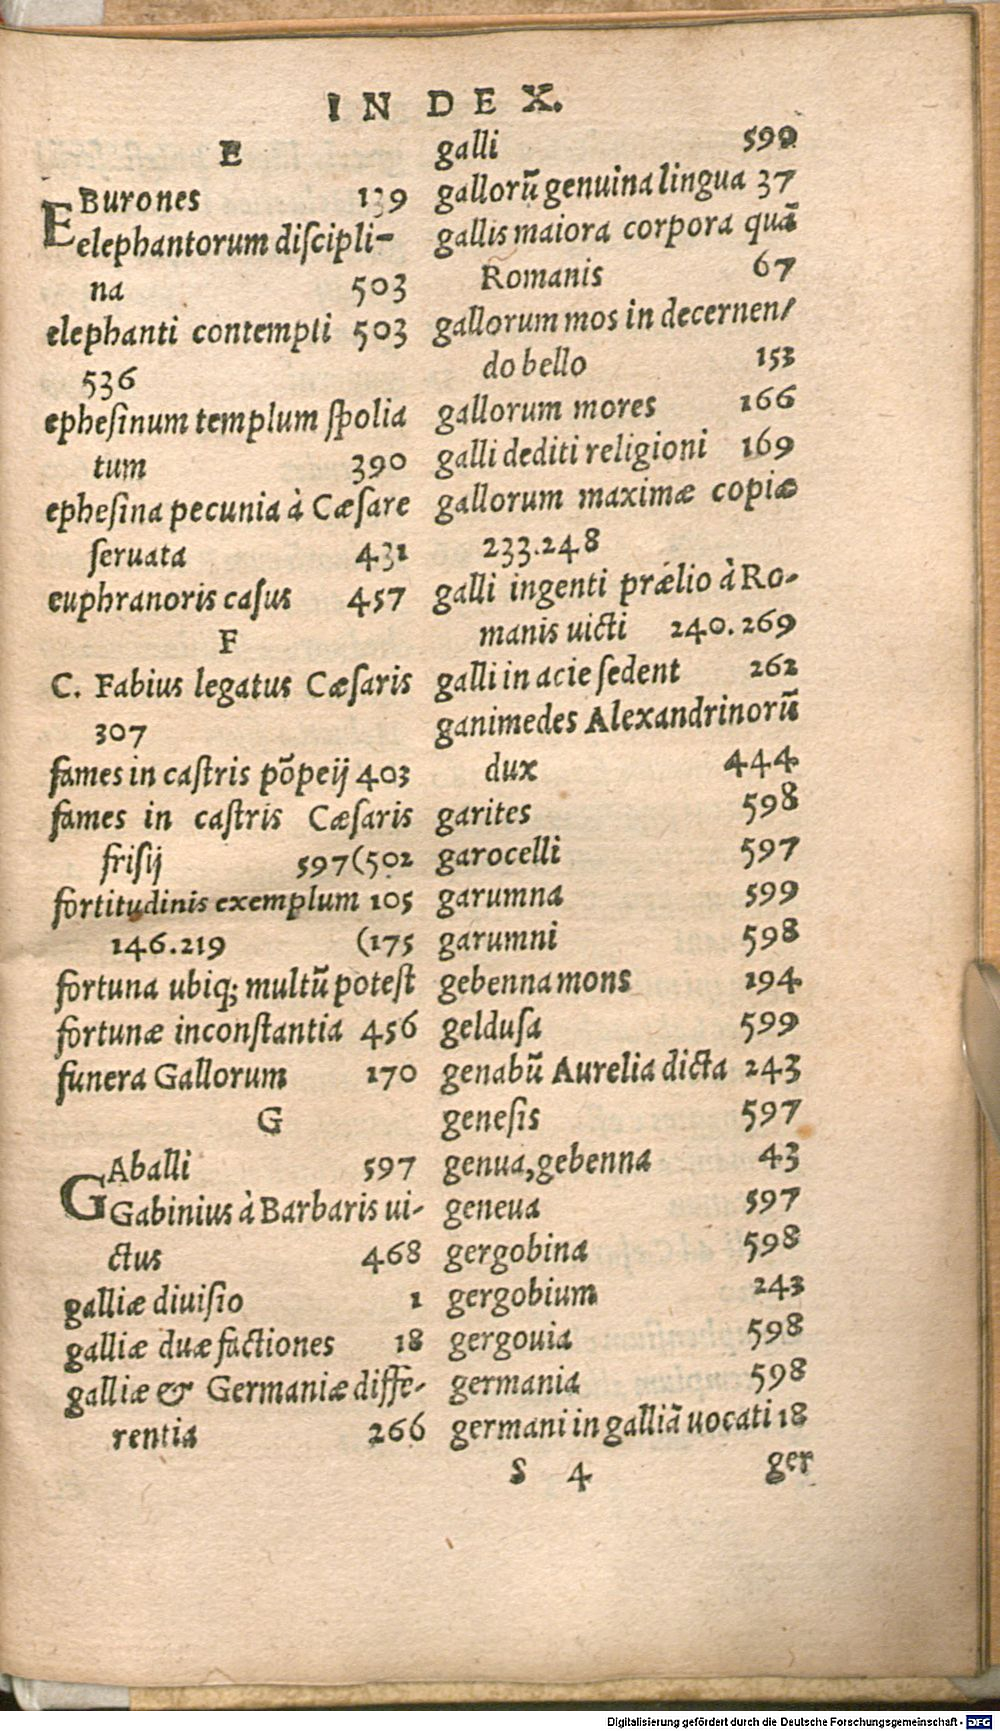 INDEX.
E
EBurones 139
elephantorum diſcipli-
na 503
elephanti contempti 503
536
epheſinum templum ſpolia
tum 390
epheſina pecunia à Cæſare
ſeruata 431
euphranoris caſus 457
F
C. Fabius legatus Cæſaris
307
fames in caſtris põpeij 403
fames in caſtris Cæſaris
friſij 597(502
fortitudinis exemplum 105
146.219 (175
fortuna ubiq; multũ poteſt
fortunæ inconſtantia 456
funera Gallorum 170
G
GAballi 597
Gabinius à Barbaris ui-
ctus 468
galliæ diuiſio 1
galliæ duæ factiones 18
galliæ & Germaniæ diffe-
rentia 266
galli 599
gallorũ genuina lingua 37
gallis maiora corpora quã
Romanis 67
gallorum mos in decernen/
do bello 153
gallorum mores 166
galli dediti religioni 169
gallorum maximæ copiæ
233.248
galli ingenti prælio à Ro-
manis uicti 240.269
galli in acie ſedent 262
ganimedes Alexandrinorũ
dux 444
garites 598
garocelli 597
garumna 599
garumni 598
gebenna mons 194
gelduſa 599
genabũ Aurelia dicta 243
geneſis 597
genua, gebenna 43
geneua 597
gergobina 598
gergobium 243
gergouia 598
germania 598
germani in galliã uocati 18
S 4 ger
Digitalisierung gefördert durch die Deutsche Forschungsgemeinschaft - DFG